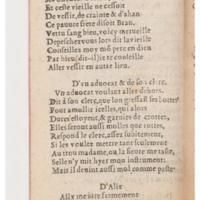 Et ceste vieille ne cessoit
De vessir, de crainte & d'ahan.
Ce pauure frere disoit Bran.
Vertu sang bieu, voicy merueille
Depeschez vous lors dit la vieille
Conseillez moy mō pere en dieu
Par bieu (dit-il) ie te conseille
Aller vessir en autre lieu.
D'vn aduocat & de son clerc.
Vn aduocat voulant aller dehors.
Dit à son clerc, que lon gressast ses bottes
Pour amollir icelles, qui alors
Dures estoyent, & garnies de crottes,
Elles seront aussi molles que
Si les voulez mettre tant seulement
Au trou madame, ou la sente me
Selle n'y mit hyer mon instrument:
Mais il deuint aussi mol comme
D'Alix
Alix me iure fermement